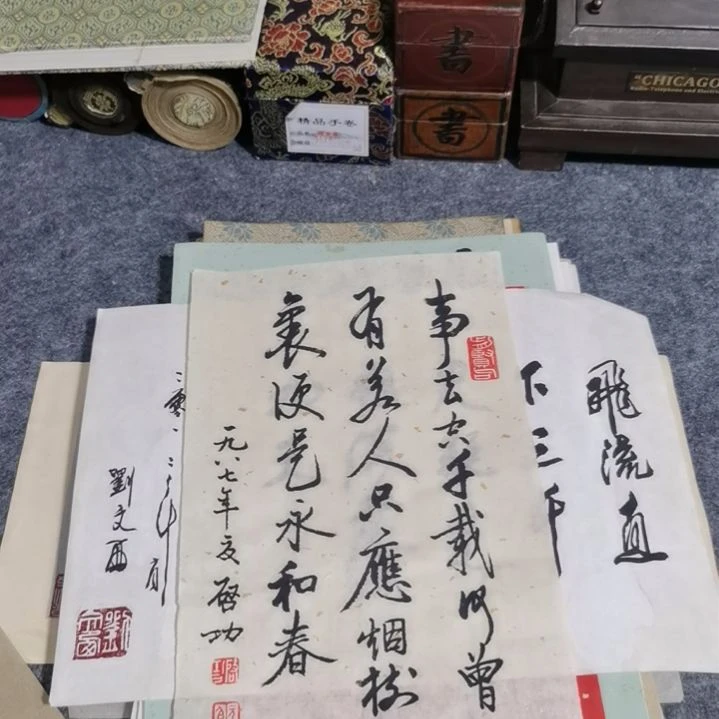 書
書
精品手卷
"CHICAGO
事去空千載何曾
有若人只應烟樹
裏便是永和春
一九八七年夏 啓功
飛流直
下三千
劉文西